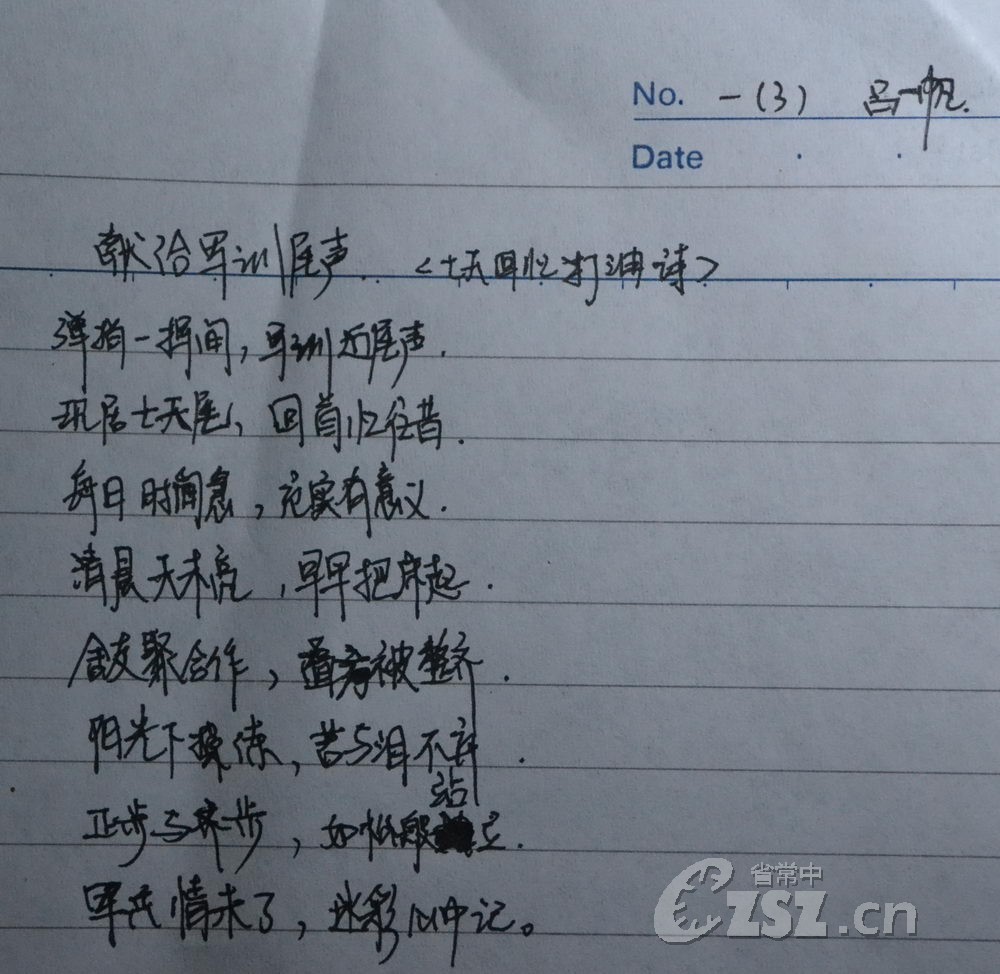 No. 一(3) 吕一帆.
Date . .
献给军训尾声. <十天回忆打油诗>
弹指一挥间，军训近尾声.
现居十天尾，回首忆往昔.
每日时间急，充实有意义.
清晨天未亮，早早把床起.
舍友聚合作，叠方被整齐.
阳光下操练，苦与泪不弃.
正步与齐步，如松般站立.
军民情未了，迷彩心中记。
省常中
CZSZ.cn